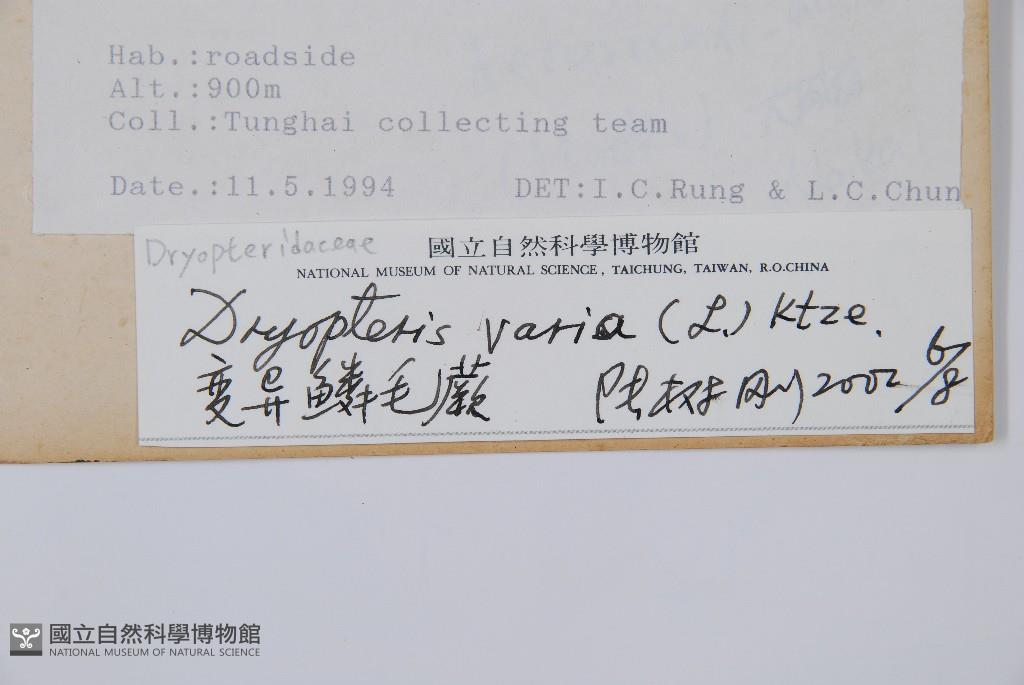 Hab.:roadside
Alt.:900m
Coll.:Tunghai collecting team
Date.:11.5.1994 DET:I.C.Rung & L.C.Chun
Dryopteridaceae 國立自然科學博物館
NATIONAL MUSEUM OF NATURAL SCIENCE, TAICHUNG, TAIWAN, R.O.CHINA
Dryopteris varia (L.) Ktze.
変异鱗毛蕨 陆树刚 2002 6/8
國立自然科學博物館
NATIONAL MUSEUM OF NATURAL SCIENCE